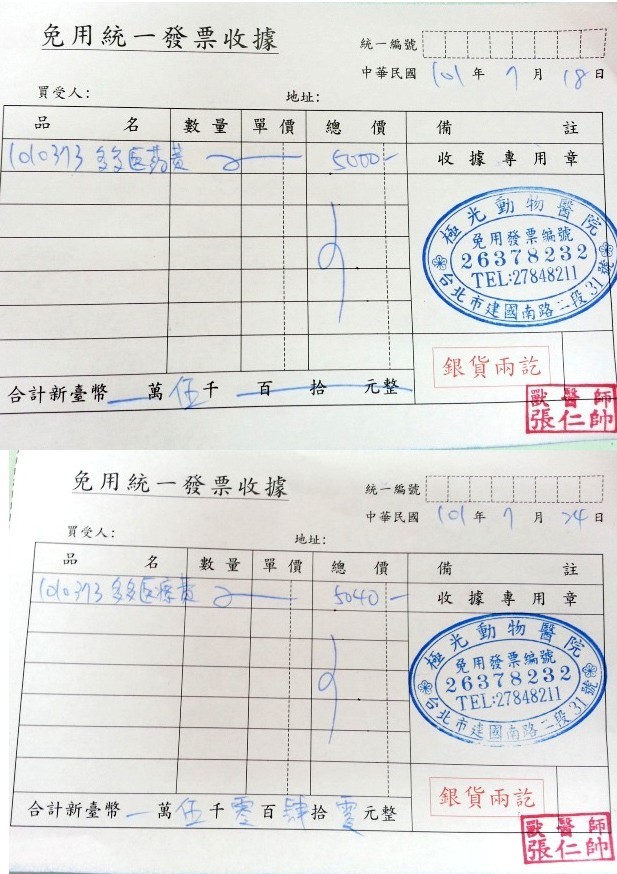 免用統一發票收據
統一編號
中華民國 101 年 7 月 18 日
買受人: 地址:
品名 數量 單價 總價 備註
1010373 多多医药费 5000- 收據專用章
極光動物醫院
免用發票編號
26378232
TEL:27848211
台北市建國南路二段31號
銀貨兩訖
合計新臺幣 萬 伍 千 百 拾 元整
獸醫師
張仁帥
免用統一發票收據
統一編號
中華民國 101 年 7 月 24 日
買受人: 地址:
品名 數量 單價 總價 備註
1010373 多多医療費 5040- 收據專用章
極光動物醫院
免用發票編號
26378232
TEL:27848211
台北市建國南路二段31號
銀貨兩訖
合計新臺幣 萬 伍 千 零 百 肆 拾 零 元整
獸醫師
張仁帥